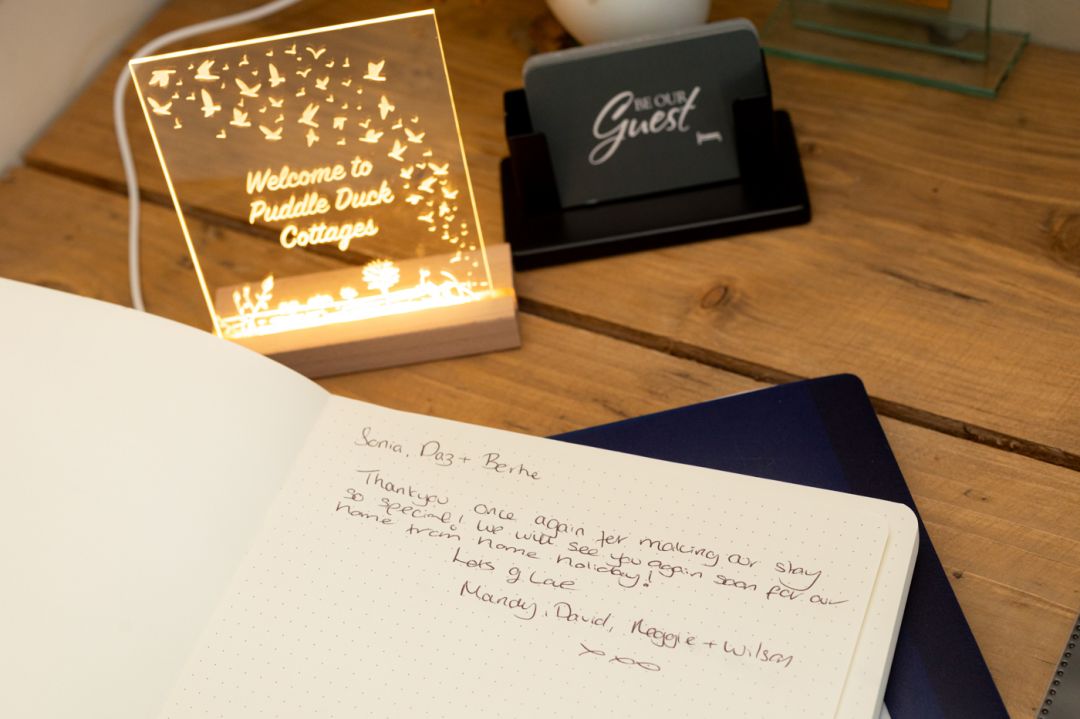 Welcome to
Puddle Duck
Cottages
BE OUR
Guest
Sonia, Daz + Bertie
Thankyou once again for making our stay
so special! We will see you again soon for our
home from home holiday!
Lots of Love
Mandy, David, Reggie + Wilson
xxxx